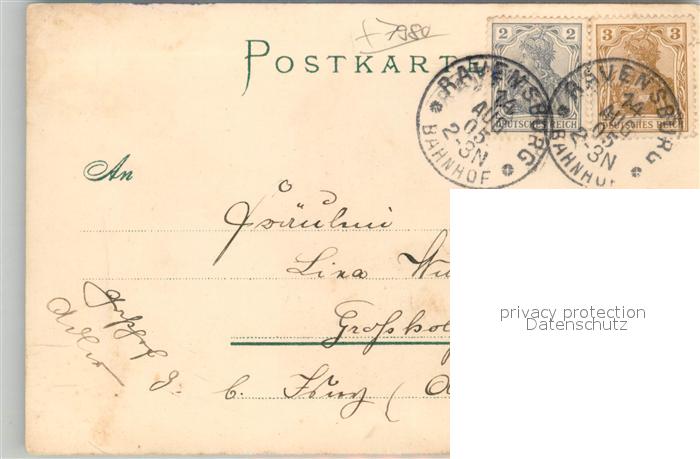 + 7980
POSTKARTE
2 2
DEUTSCHES REICH
3 3
DEUTSCHES REICH
RAVENSBURG
14
AUG
05
2-3N
BAHNHOF
RAVENSBURG
14
AUG
05
2-3N
BAHNHOF
An
Fräulein
Lina
b. Isny (
privacy protection
Datenschutz